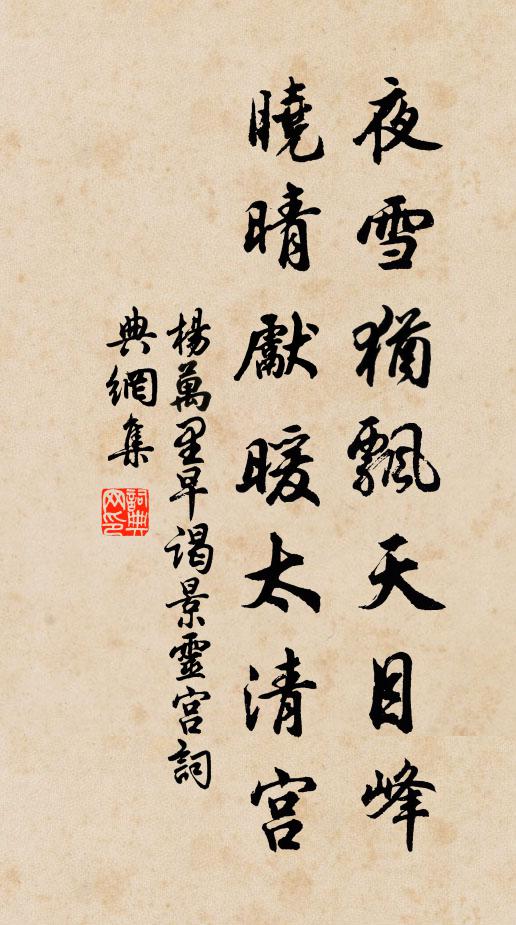 夜雪猶飄天目峰
曉晴獻暖太清宮
楊萬里早謁景靈宮詞
典網集
詞典
网印